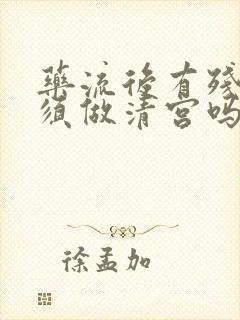 藥流後有殘
須做清宮嗎
徐孟加